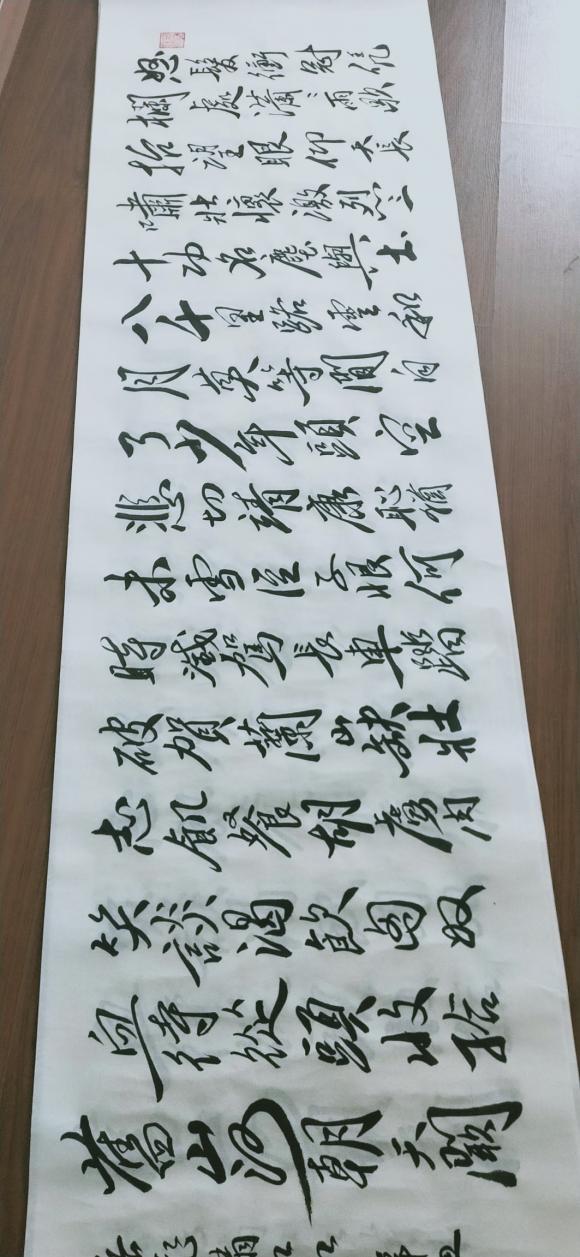 怒髮衝冠凭
欄處瀟瀟雨歇
抬望眼仰天長
嘯壯懷激烈三
十功名塵與土
八千里路雲和
月莫等閒白
了少年頭空
悲切靖康恥猶
未雪臣子恨何
時滅駕長車踏
破賀蘭山缺壯
志飢餐胡虜肉
笑談渴飲匈奴
血待從頭收拾
舊山河朝天闕